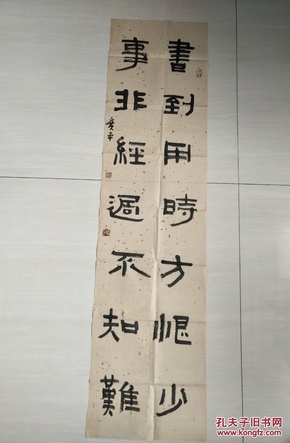 書到用時方恨少
事非經過不知難
孔夫子旧书网